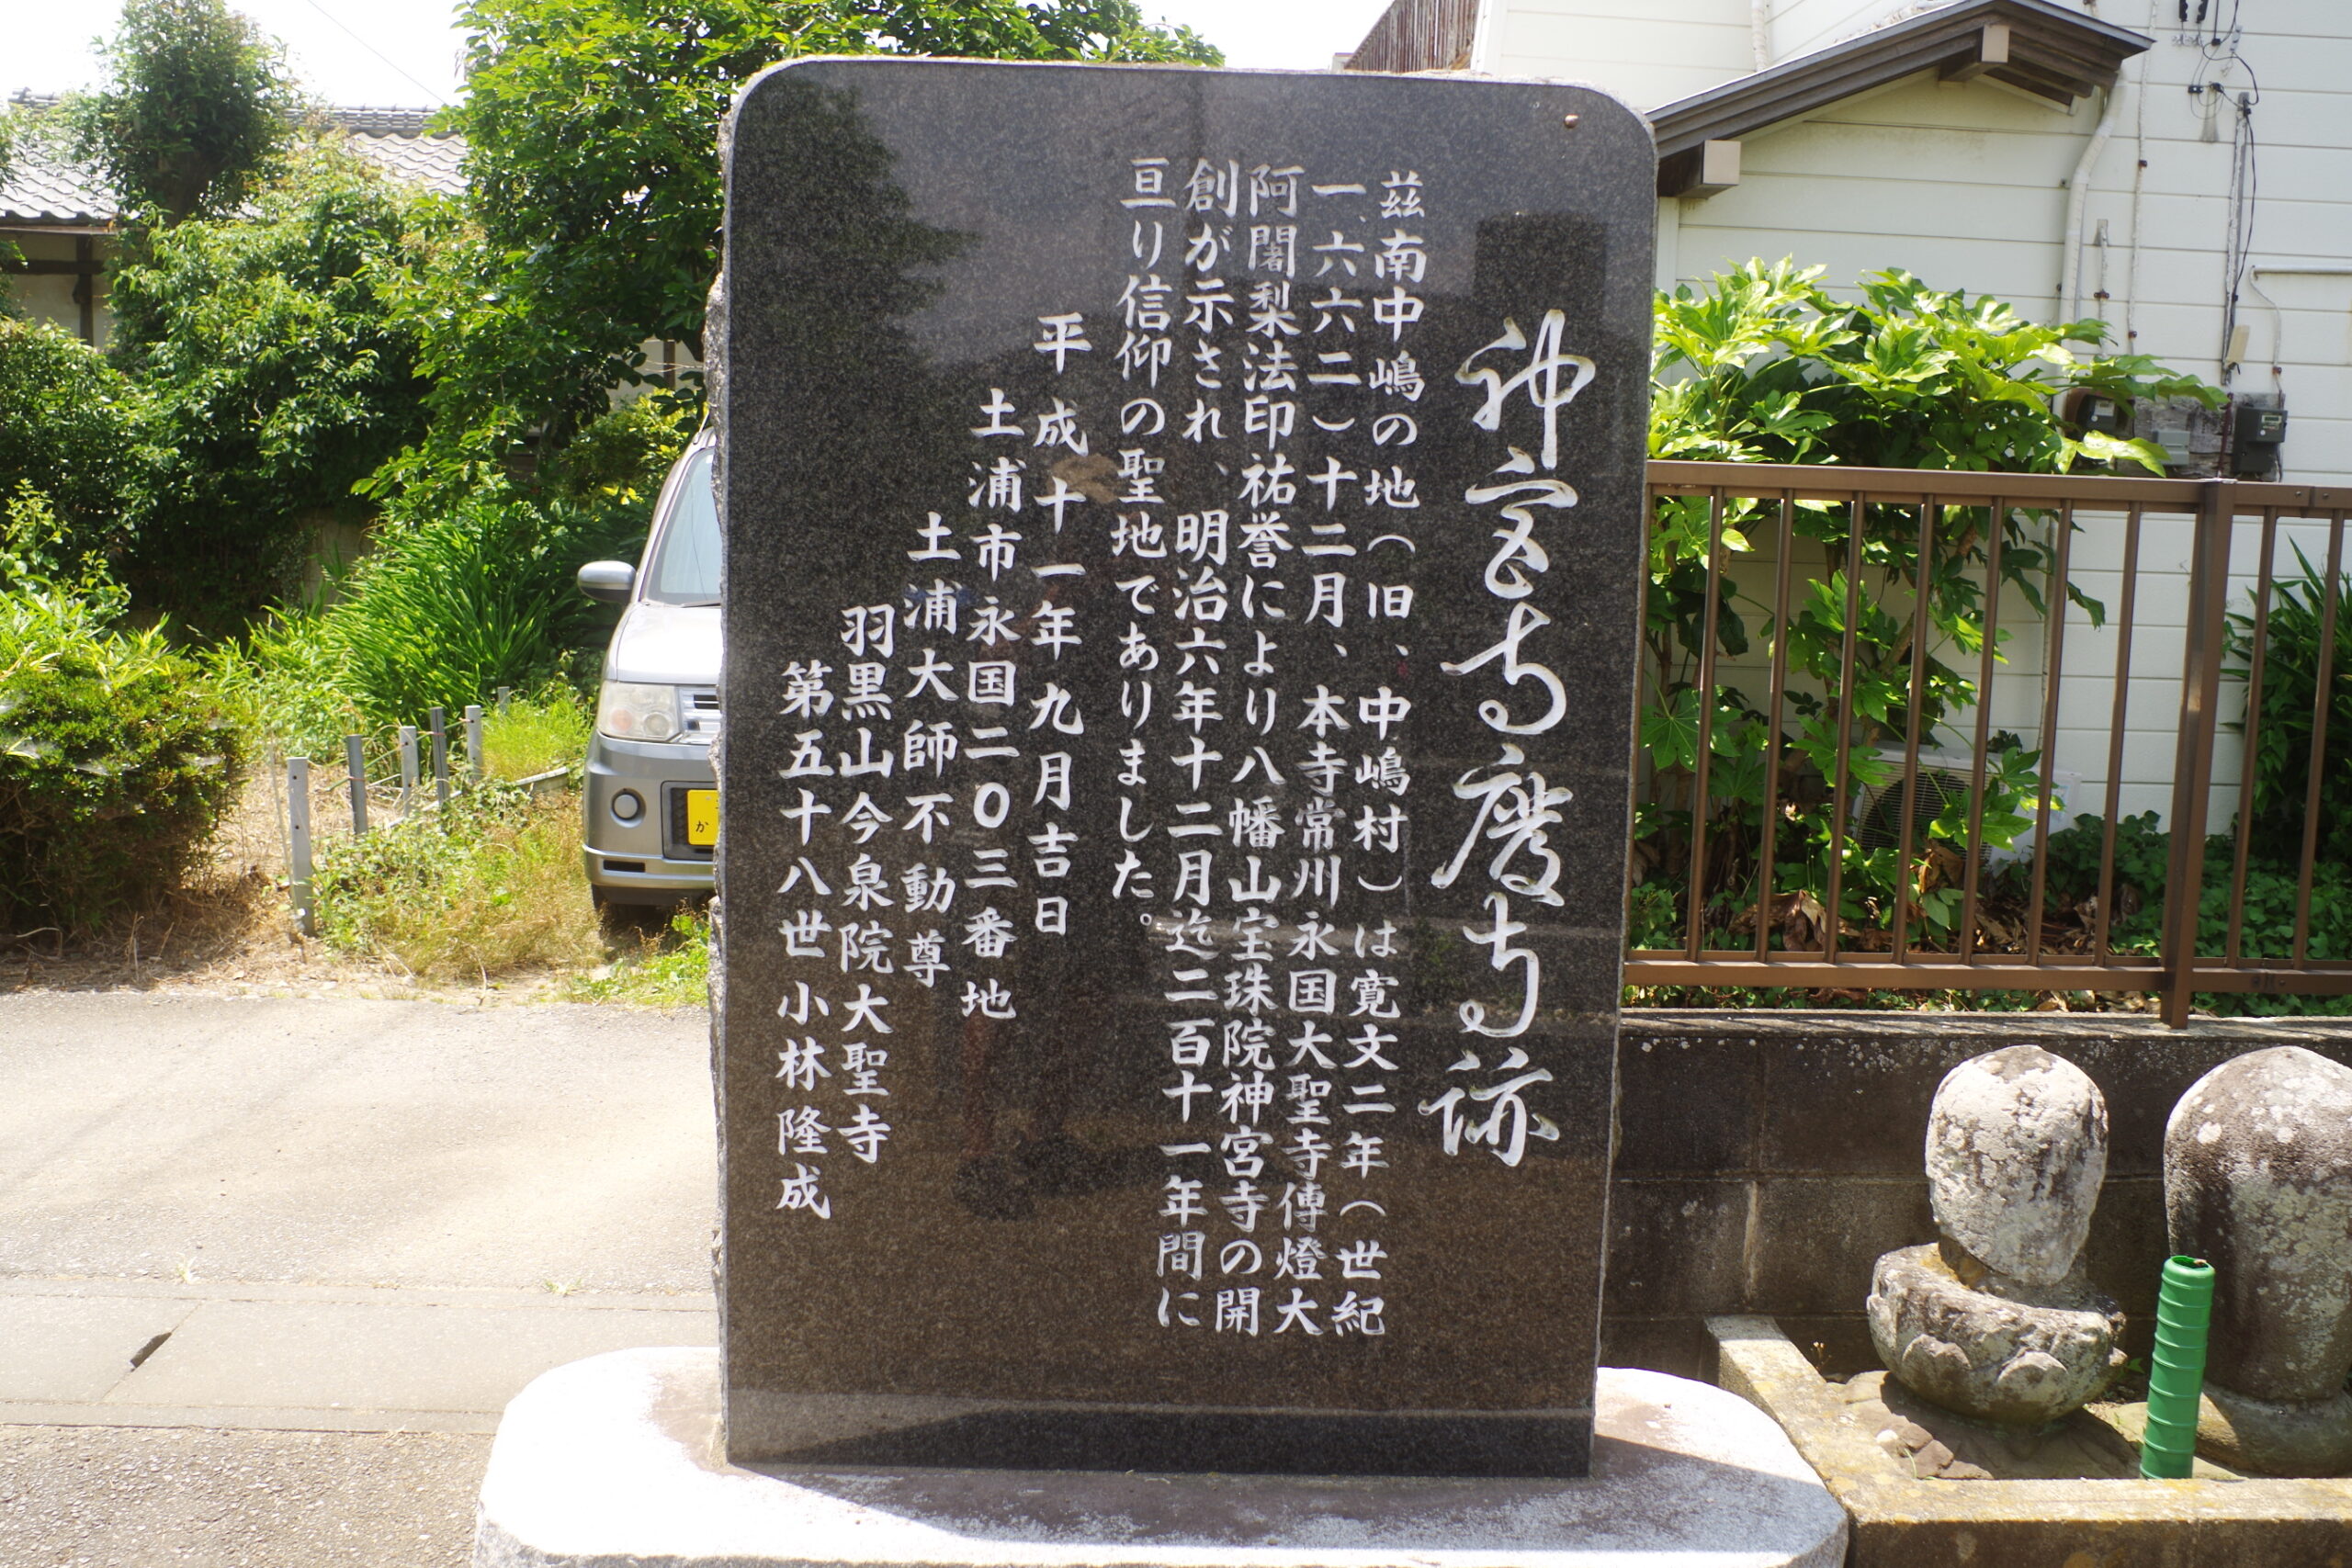 神宮寺廃寺跡
茲南中嶋の地（旧、中嶋村）は寛文二年（世紀
一、六六二）十二月、本寺常川永国大聖寺傳燈大
阿闍梨法印祐誉により八幡山宝珠院神宮寺の開
創が示され、明治六年十二月迄二百十一年間に
亘り信仰の聖地でありました。
平成十一年九月吉日
土浦市永国二〇三番地
土浦大師不動尊
羽黒山今泉院大聖寺
第五十八世小林隆成
か